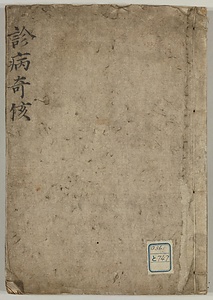 診病奇侅